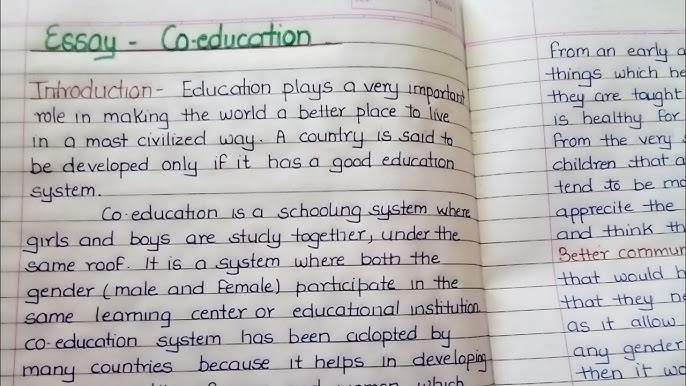 Essay - Co-education
Introduction - Education plays a very important
role in making the world a better place to live
in a most civilized way. A country is said to
be developed only if it has a good education
system.
Co-education is a schooling system where
girls and boys are study together, under the
same roof. It is a system where both the
gender (male and female) participate in the
same learning center or educational institution.
co-education system has been adopted by
many countries because it helps in developing
which
from an early a
things which he
they are taught
is healthy for
from the very
children that a
tend to be mo
apprecite the
and think th
Better commun
that would h
that they ne
as it allow
any gender
then it wo